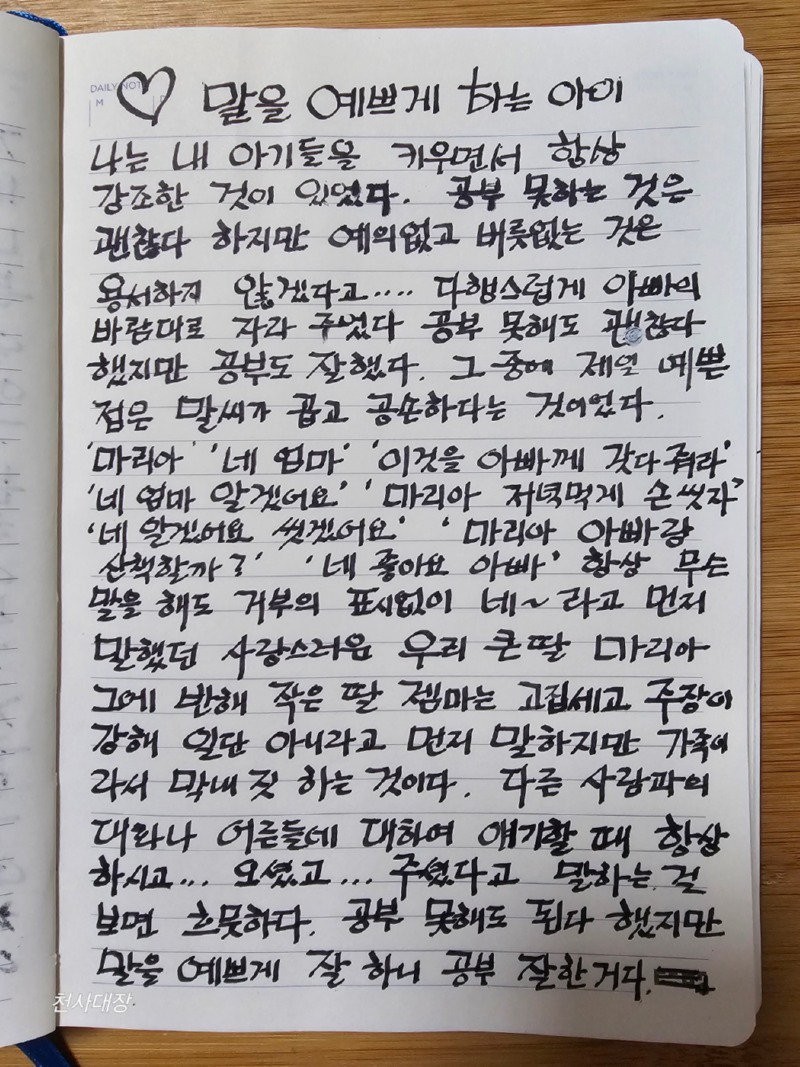 DAILY NOTE
M
♡ 말을 예쁘게 하는 아이
나는 내 아기들을 키우면서 항상
강조한 것이 있었다. 공부 못하는 것은
괜찮다 하지만 예의없고 버릇없는 것은
용서하지 않겠다고.... 다행스럽게 아빠의
바람대로 자라 주었다 공부 못해도 괜찮다
했지만 공부도 잘했다. 그 중에 제일 예쁜
점은 말씨가 곱고 공손하다는 것이었다.
'마리아' '네 엄마' '이것을 아빠께 갖다 줘라'
'네 엄마 알겠어요' '마리아 저녁먹게 손 씻자'
'네 알겠어요 씻겠어요' '마리아 아빠랑
산책할까?' '네 좋아요 아빠' 항상 무슨
말을 해도 거부의 표시없이 네~ 라고 먼저
말했던 사랑스러운 우리 큰 딸 마리아
그에 반해 작은 딸 젬마는 고집세고 주장이
강해 일단 아니라고 먼저 말하지만 가족이
라서 막내 짓 하는 것이다. 다른 사람과의
대화나 어른들에 대하여 얘기할 때 항상
하시고... 오셨고... 주셨다고 말하는 걸
보면 흐뭇하다. 공부 못해도 된다 했지만
말을 예쁘게 잘 하니 공부 잘한 거다.
천사대장